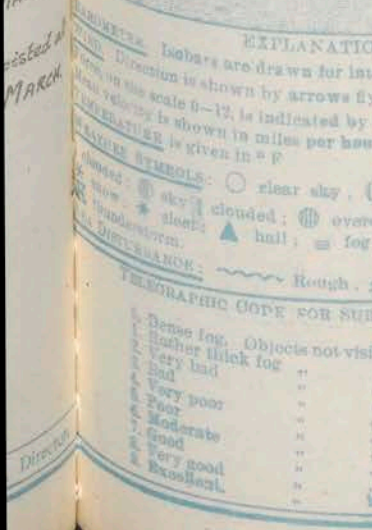 MARCH.
EXPLANATIO
BAROMETER. Isobars are drawn for int
WIND. Direction is shown by arrows fly
on the scale 0—12, is indicated by
velocity is shown in miles per hou
TEMPERATURE is given in ° F
WEATHER SYMBOLS: clear sky.
clouded; sky clouded; overc
snow. sleet; hail; fog
thunderstorm.
SEA DISTURBANCE: Rough.
TELEGRAPHIC CODE FOR SU
Dense fog. Objects not visi
Rather thick fog "
Very bad "
Bad "
Very poor "
Poor "
Moderate "
Good "
Very good "
Excellent. "
Director